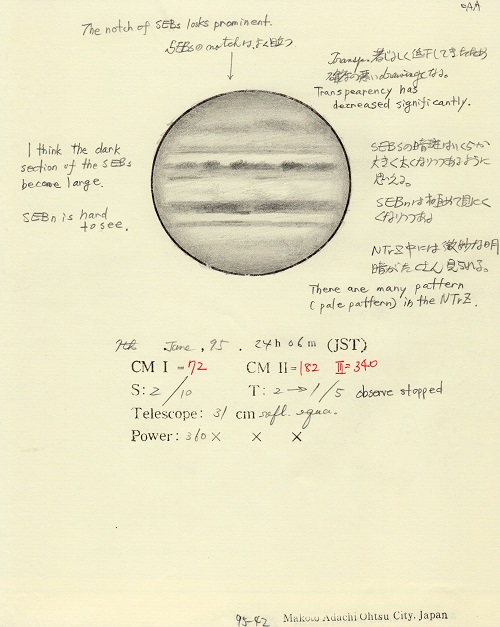 OAA
The notch of SEBs looks prominent.
SEBsのnotchは、よく目立つ
Transpa. 著じるしく低下してきたため
Transpearency has
decreased significantly.
I think the dark
section of the SEBs
become large.
SEBn is hard
to see.
SEBSの暗斑はいくらか
大きく太くなりつつあるように
思える。
SEBnは極めて見にく
くなりつつある
NTrZ中には微妙な明
暗がたくさん見られる。
There are many pattern
(pale pattern) in the NTrZ.
7th June, 95. 24h 06m (JST)
CM I = 72 CM II = 182 III = 340
S: 2/10 T: 2→1/5 observe stopped
Telescope: 31 cm refl. equa.
Power: 360 × × ×
95-42 Makoto Adachi Ohtsu City, Japan